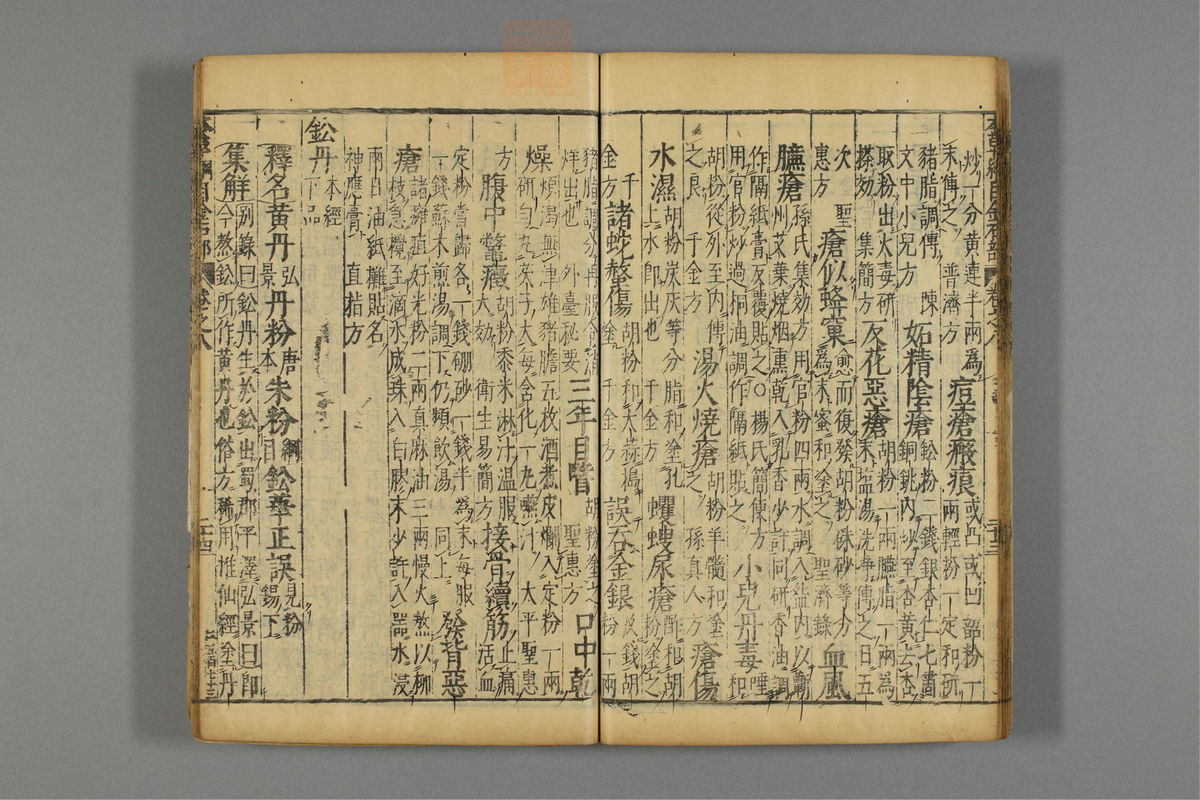 炒一分黄連半兩為
末傅之 普濟方 痘瘡瘢痕 或凸或凹韶粉一
兩輕粉一定和研
豬脂調傅 陳
文中小兒方 妬精陰瘡 鉛粉二錢銀杏仁七箇
銅銚内炒至杏黄去杏
取粉出火毒研
搽効 集簡方 反花惡瘡 胡粉一兩臙脂一兩為
末塩湯洗净傅之日五
次 聖
惠方 瘡似蜂窠 愈而復發胡粉硃砂等分
為末蜜和塗之 聖濟錄 血風
臁瘡 孫氏集効方用官粉四兩水調入盌内以蘄
州艾葉燒烟熏乾入乳香少許同研香油調
作隔紙膏反覆貼之○楊氏簡便方
用官粉炒過桐油調作隔紙貼之 小兒丹毒 唾和
胡粉從外至内傅
之良 千金方 湯火燒瘡 胡粉羊髓和塗
之 孫真人方 瘡傷
水濕 胡粉炭灰等分脂和塗孔
上水即出也 千金方 蠼螋尿瘡 酢和胡
粉塗之
千
金方 諸蛇螫傷 胡粉和大蒜擣
塗 千金方 誤吞金銀 及錢胡
粉一兩
豬脂調分再服令消
烊出也 外臺秘要 三年目瞖 胡粉塗之
聖惠方 口中乾
燥 煩渴無津雄豬膽五枚酒煮皮爛入定粉一兩
研勻丸芡子大每含化一丸嚥汁 太平聖惠
方 腹中鱉癥 胡粉黍米淋汁温服
大効 衛生易簡方 接骨續筋 止痛
活血
定粉當歸各一錢硼砂一錢半為末每服
一錢蘇木煎湯調下仍頻飲湯 同上 發背惡
瘡 諸癰疽好光粉二兩真麻油三兩慢火熬以柳
枝急攪至滴水成珠入白膠末少許入器水浸
兩日油紙攤貼名
神應膏 直指方
鉛丹 本經
下品
釋名 黄丹 弘
景 丹粉 唐
本 朱粉 綱
目 鉛華 正誤 見粉
錫下
集解 别錄曰鉛丹生於鉛出蜀郡平澤弘景曰即
今熬鉛所作黄丹也俗方稀用惟仙經塗丹